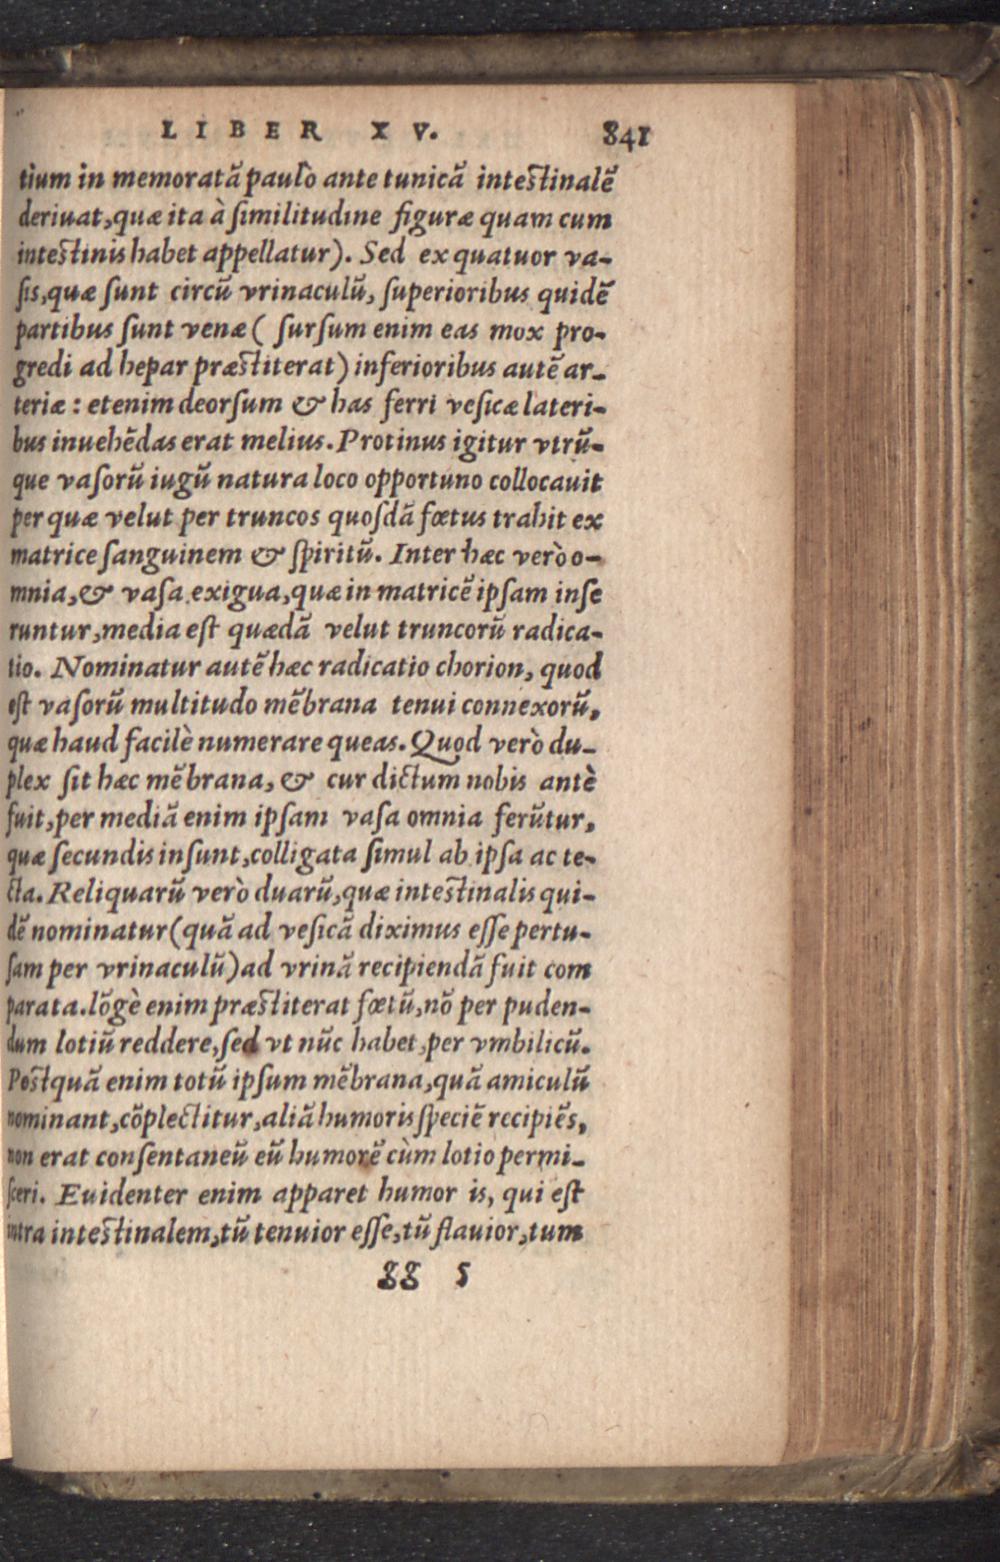 LIBER XV. 841
tium in memoratã paulò ante tunicã intestinalẽ
deriuat, quæ ita à similitudine figuræ quam cum
intestinis habet appellatur). Sed ex quatuor va-
sis, quæ sunt circũ vrinaculũ, superioribus quidẽ
partibus sunt venæ ( sursum enim eas mox pro-
gredi ad hepar præstiterat) inferioribus autẽ ar-
teriæ : etenim deorsum & has ferri vesicæ lateri-
bus inuehẽdas erat melius. Protinus igitur vtrũ-
que vasorũ iugũ natura loco opportuno collocauit
per quæ velut per truncos quosdã fœtus trahit ex
matrice sanguinem & spiritũ. Inter hæc verò o-
mnia, & vasa exigua, quæ in matricẽ ipsam inse
runtur, media est quædã velut truncorũ radica-
tio. Nominatur autẽ hæc radicatio chorion, quod
est vasorũ multitudo mẽbrana tenui connexorũ,
quæ haud facilè numerare queas. Quod verò du-
plex sit hæc mẽbrana, & cur dictum nobis antè
fuit, per mediã enim ipsam vasa omnia ferũtur,
quæ secundis insunt, colligata simul ab ipsa ac te-
cta. Reliquarũ verò duarũ, quæ intestinalis qui-
dẽ nominatur (quã ad vesicã diximus esse pertu-
sam per vrinaculũ) ad vrinã recipiendã fuit com
parata. lõgè enim præstiterat fœtũ, nõ per puden-
dum lotiũ reddere, sed vt nũc habet, per vmbilicũ.
Postquã enim totũ ipsum mẽbrana, quã amiculũ
nominant, cõplectitur, aliã humoris speciẽ recipiẽs,
non erat consentaneũ eũ humorẽ cùm lotio permi-
sceri. Euidenter enim apparet humor is, qui est
intra intestinalem, tũ tenuior esse, tũ flauior, tum
gg 5